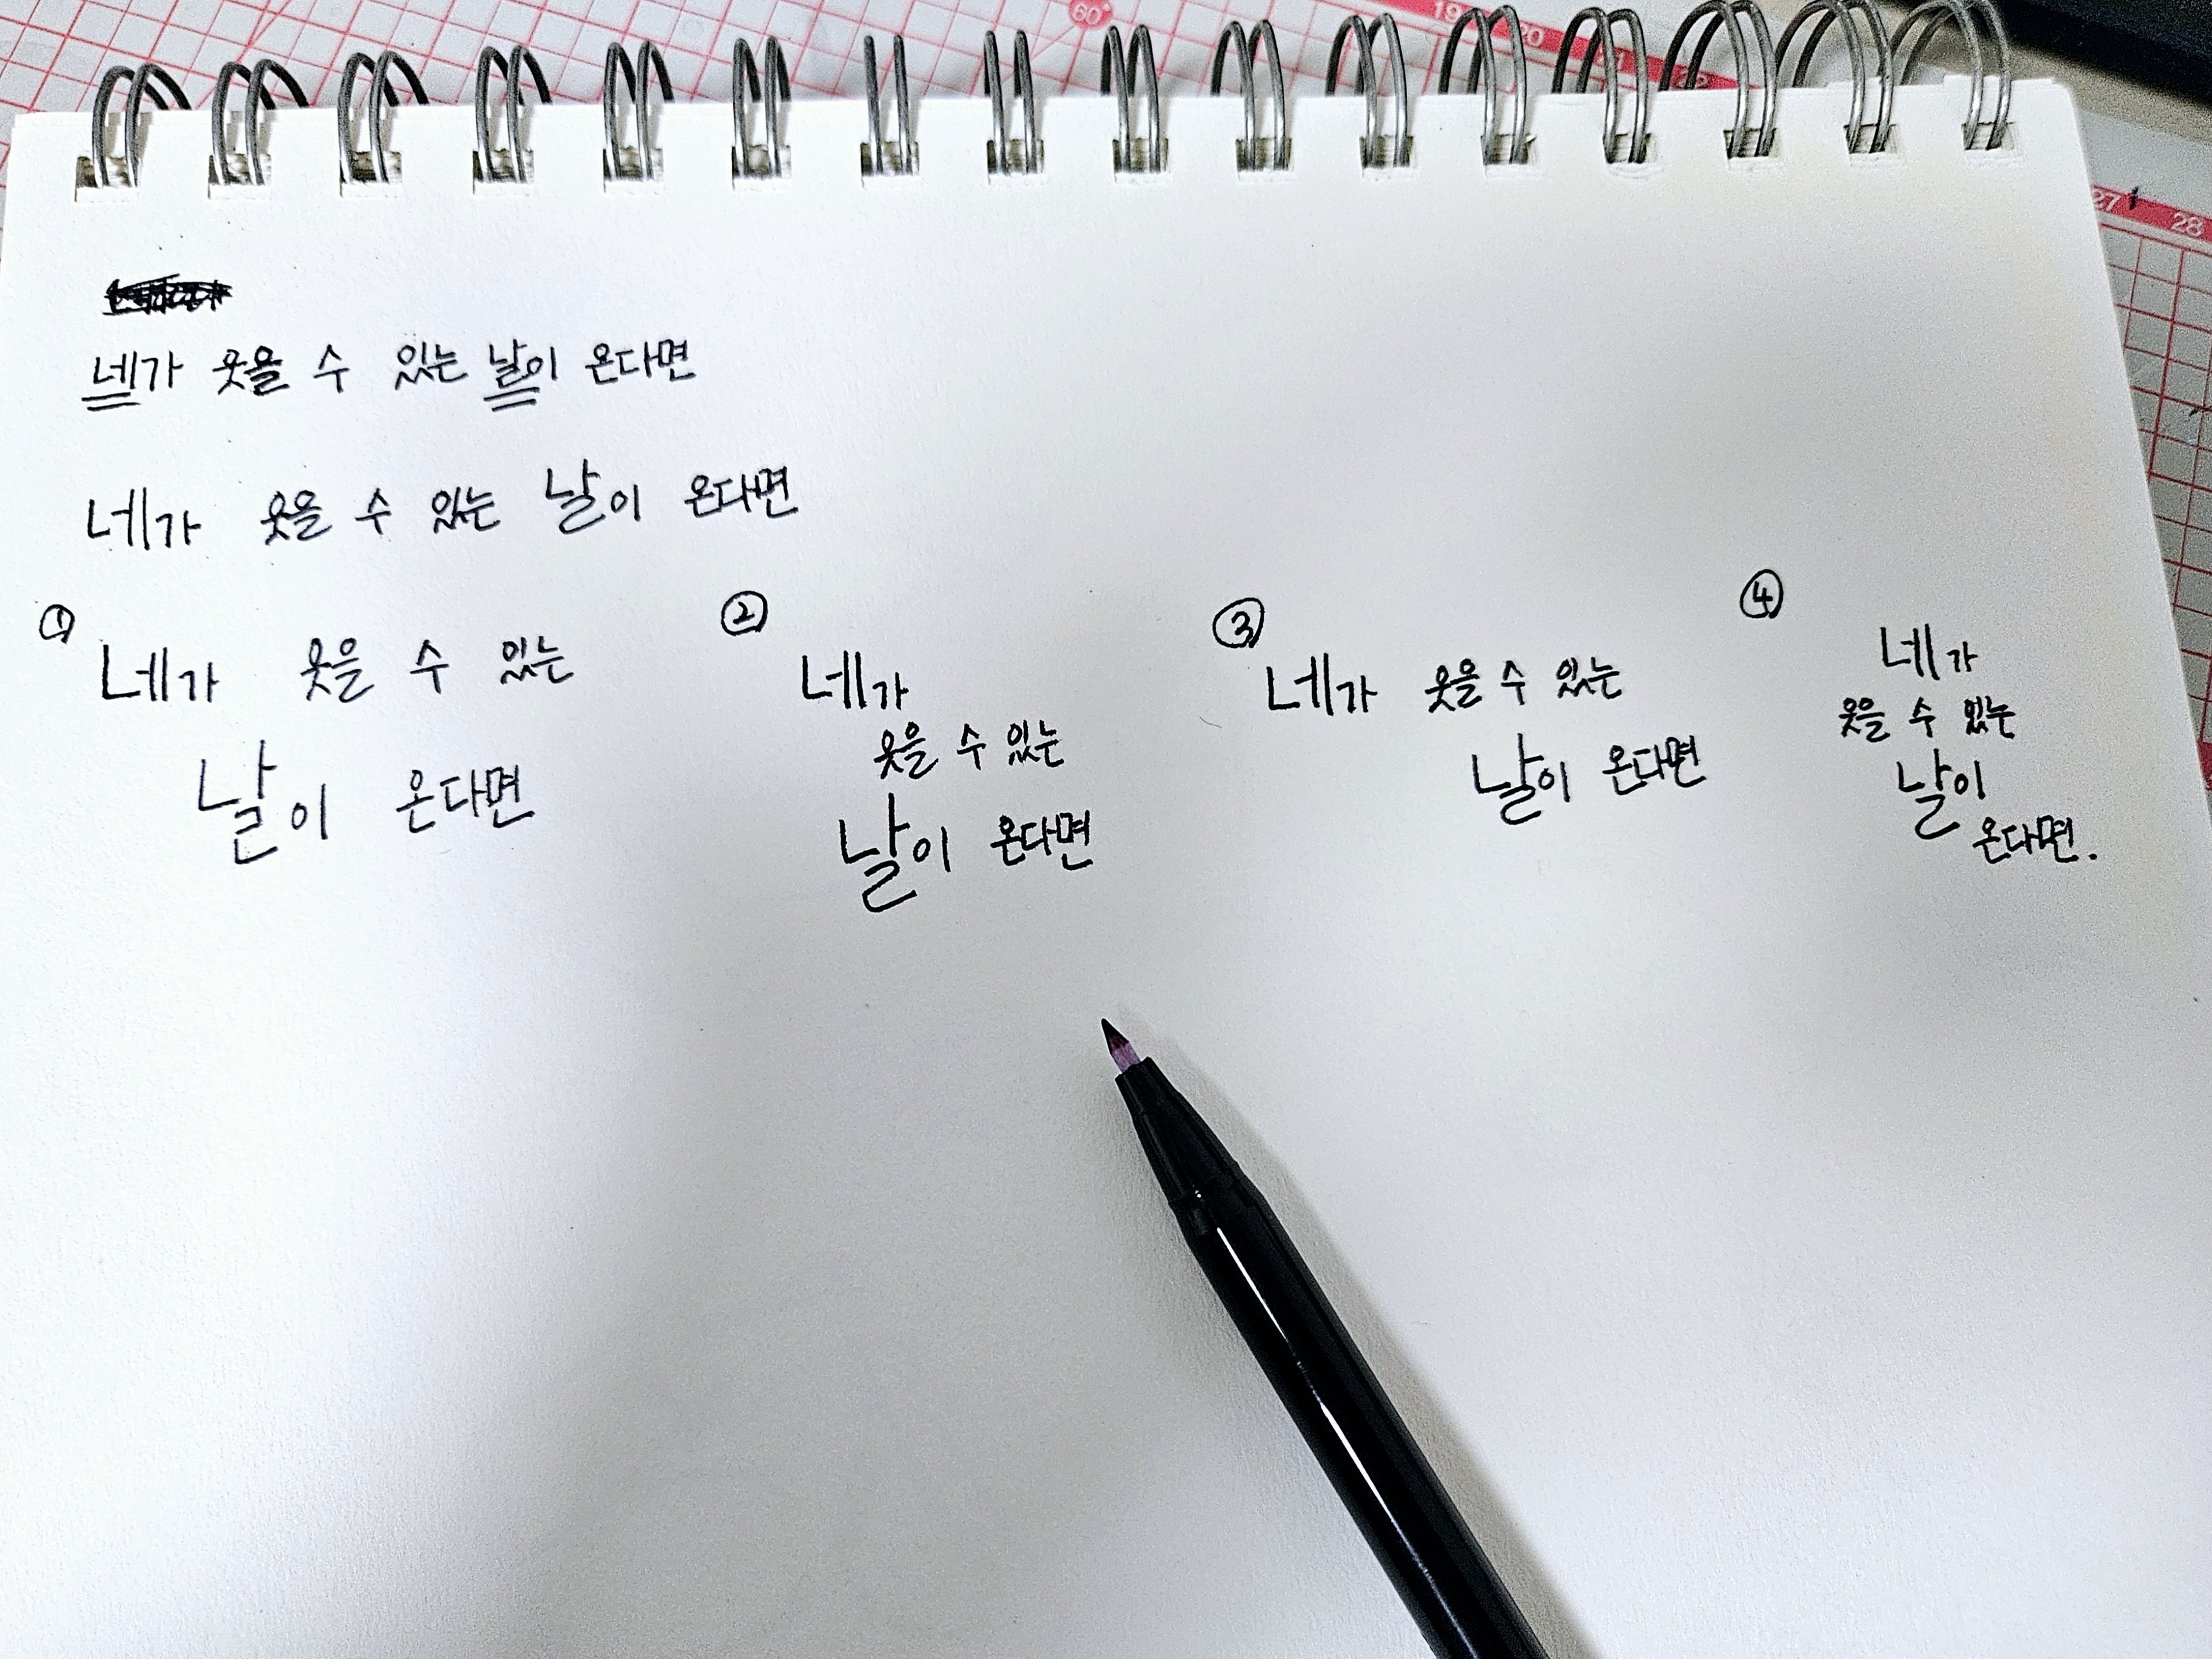 네가 웃을 수 있는 날이 온다면
네가 웃을 수 있는 날이 온다면
①
네가 웃을 수 있는
날이 온다면
②
네가
웃을 수 있는
날이 온다면
③
네가 웃을 수 있는
날이 온다면
④
네가
웃을 수 있는
날이
온다면.
60°
19
20
21
22
27
28